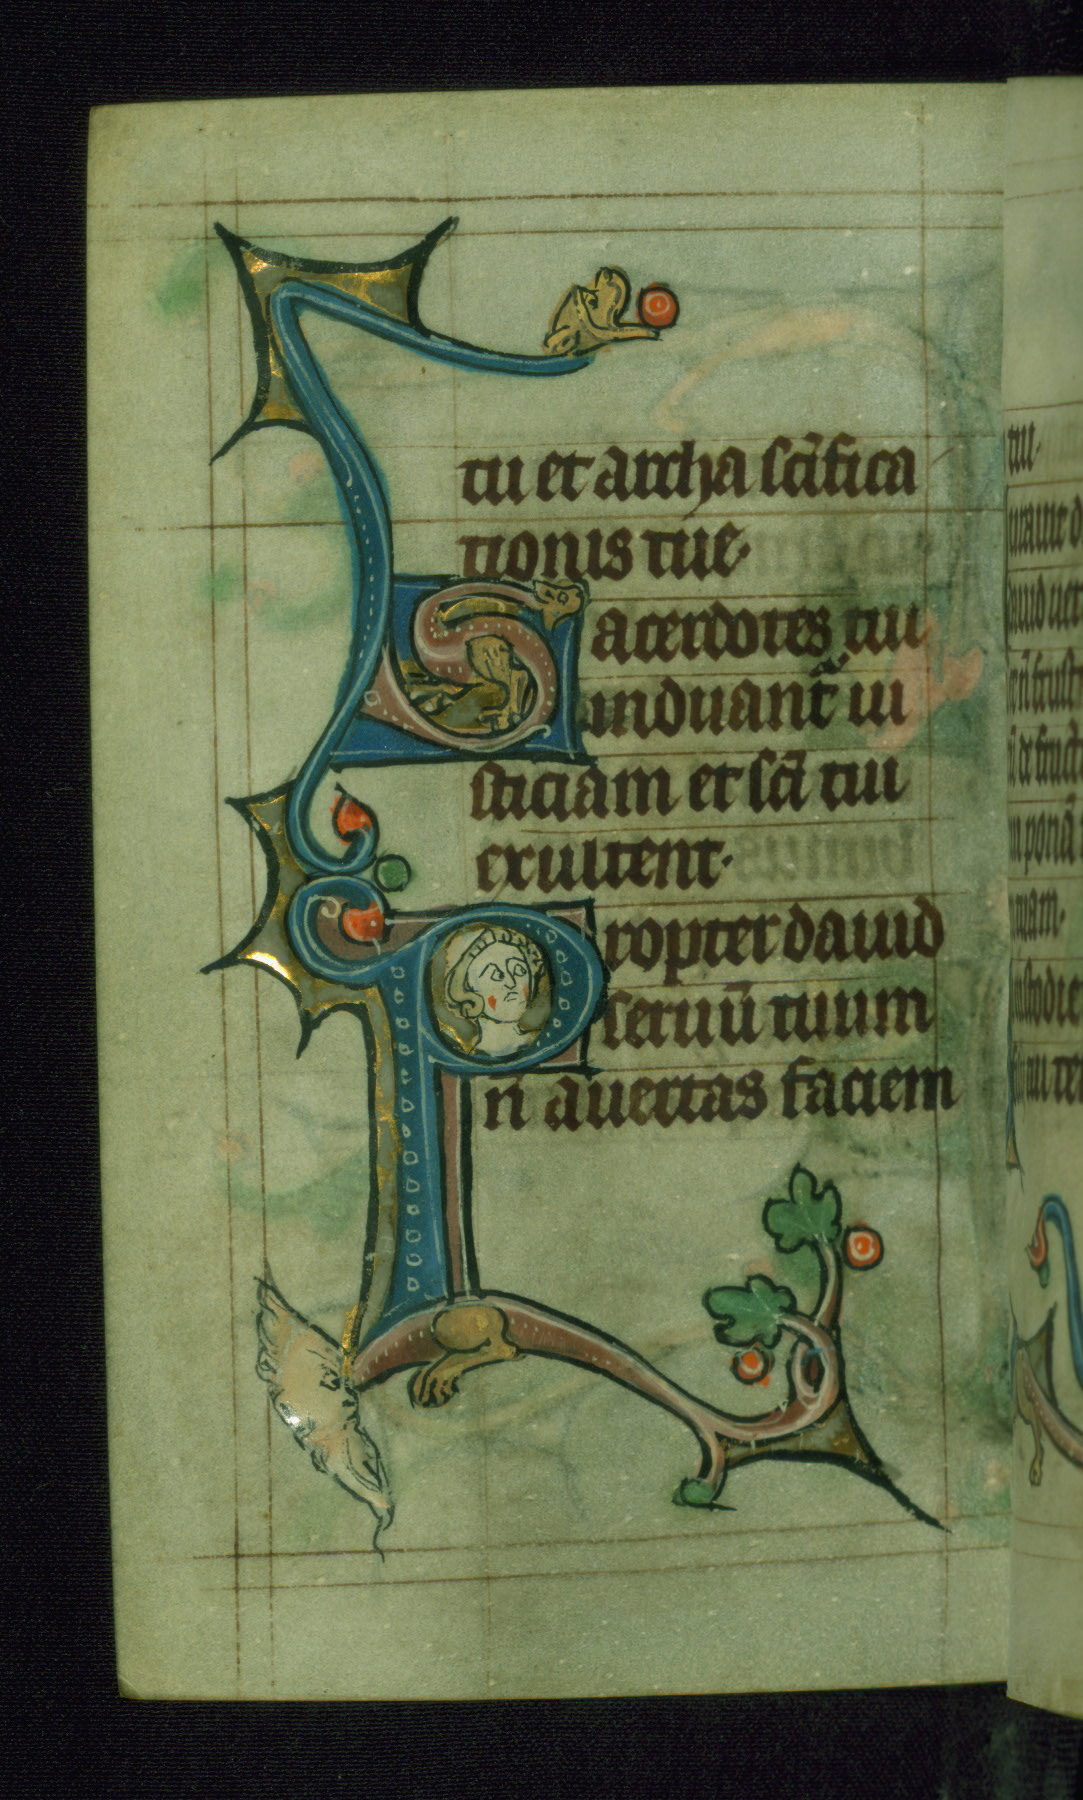 tu et archa sc̄ifica
tionis tue·
Sacerdotes tui
induant̄ iu
sticiam et sc̄i tui
exultent·
Propter dauid
seruū tuum
n̄ auertas faciem
tui·